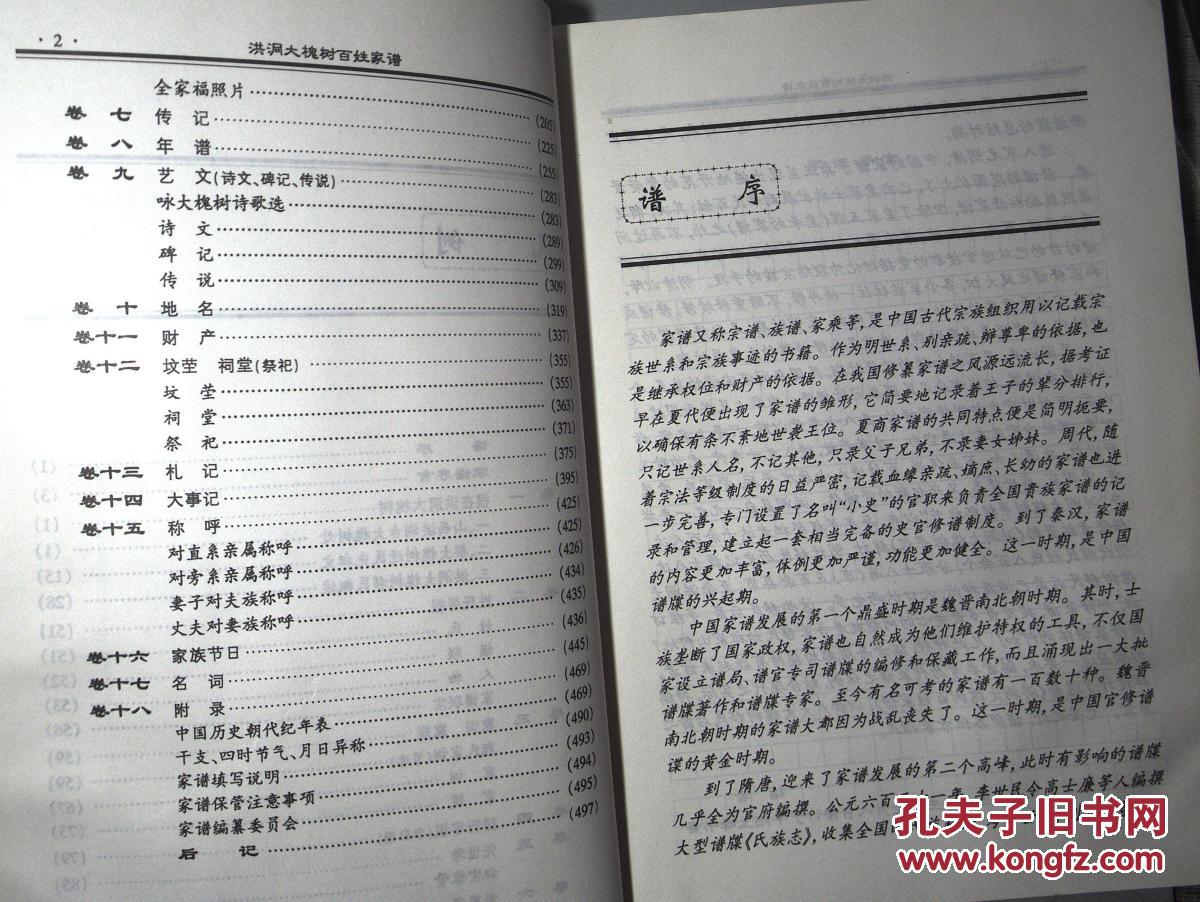 · 2 ·
洪洞大槐树百姓家谱
全家福照片……(205)
卷七 传记……(225)
卷八 年谱……(255)
卷九 艺文(诗文、碑记、传说)……(283)
咏大槐树诗歌选……(283)
诗文……(289)
碑记……(299)
传说……(309)
卷十 地名……(319)
卷十一 财产……(337)
卷十二 坟茔 祠堂(祭祀)……(355)
坟茔……(355)
祠堂……(363)
祭祀……(371)
卷十三 札记……(375)
卷十四 大事记……(395)
卷十五 称呼……(425)
对直系亲属称呼……(425)
对旁系亲属称呼……(426)
妻子对夫族称呼……(434)
丈夫对妻族称呼……(435)
卷十六 家族节日……(436)
卷十七 名词……(445)
卷十八 附录……(469)
中国历史朝代纪年表……(469)
干支、四时节气、月日异称……(490)
家谱填写说明……(493)
家谱保管注意事项……(494)
家谱编纂委员会……(495)
后记……(497)
谱序
家谱又称宗谱、族谱、家乘等,是中国古代宗族组织用以记载宗
族世系和宗族事迹的书籍。作为明世系、别亲疏、辩尊卑的依据,也
是继承权位和财产的依据。在我国修纂家谱之风源远流长,据考证
早在夏代便出现了家谱的雏形,它简要地记录着王子的辈分排行,
以确保有条不紊地世袭王位。夏商家谱的共同特点便是简明扼要,
只记世系人名,不记其他,只录父子兄弟,不录妻女姊妹。周代,随
着宗法等级制度的日益严密,记载血缘亲疏、嫡庶、长幼的家谱也进
一步完善,专门设置了名叫“小史”的官职来负责全国贵族家谱的记
录和管理,建立起一套相当完备的史官修谱制度。到了秦汉,家谱
的内容更加丰富,体例更加严谨,功能更加健全。这一时期,是中国
谱牒的兴起期。
中国家谱发展的第一个鼎盛时期是魏晋南北朝时期。其时,士
族垄断了国家政权,家谱也自然成为他们维护特权的工具,不仅国
家设立谱局、谱官专司谱牒的编修和保藏工作,而且涌现出一大批
谱牒著作和谱牒专家。至今有名可考的家谱有一百数十种。魏晋
南北朝时期的家谱大都因为战乱丧失了。这一时期,是中国官修谱
谍的黄金时期。
到了隋唐,迎来了家谱发展的第二个高峰,此时有影响的谱牒
几乎全为官府编撰。公元六百三十一年,李世民令高士廉等人编撰
大型谱牒《氏族志》,收集全国
孔夫子旧书网
www.kongfz.com